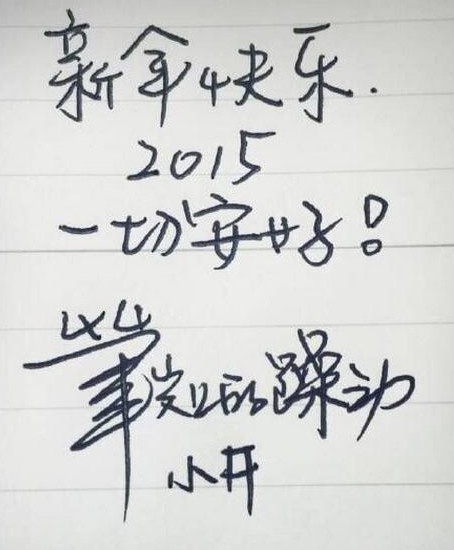 新年快乐.
2015
一切安好!
笔岂的躁动
小开